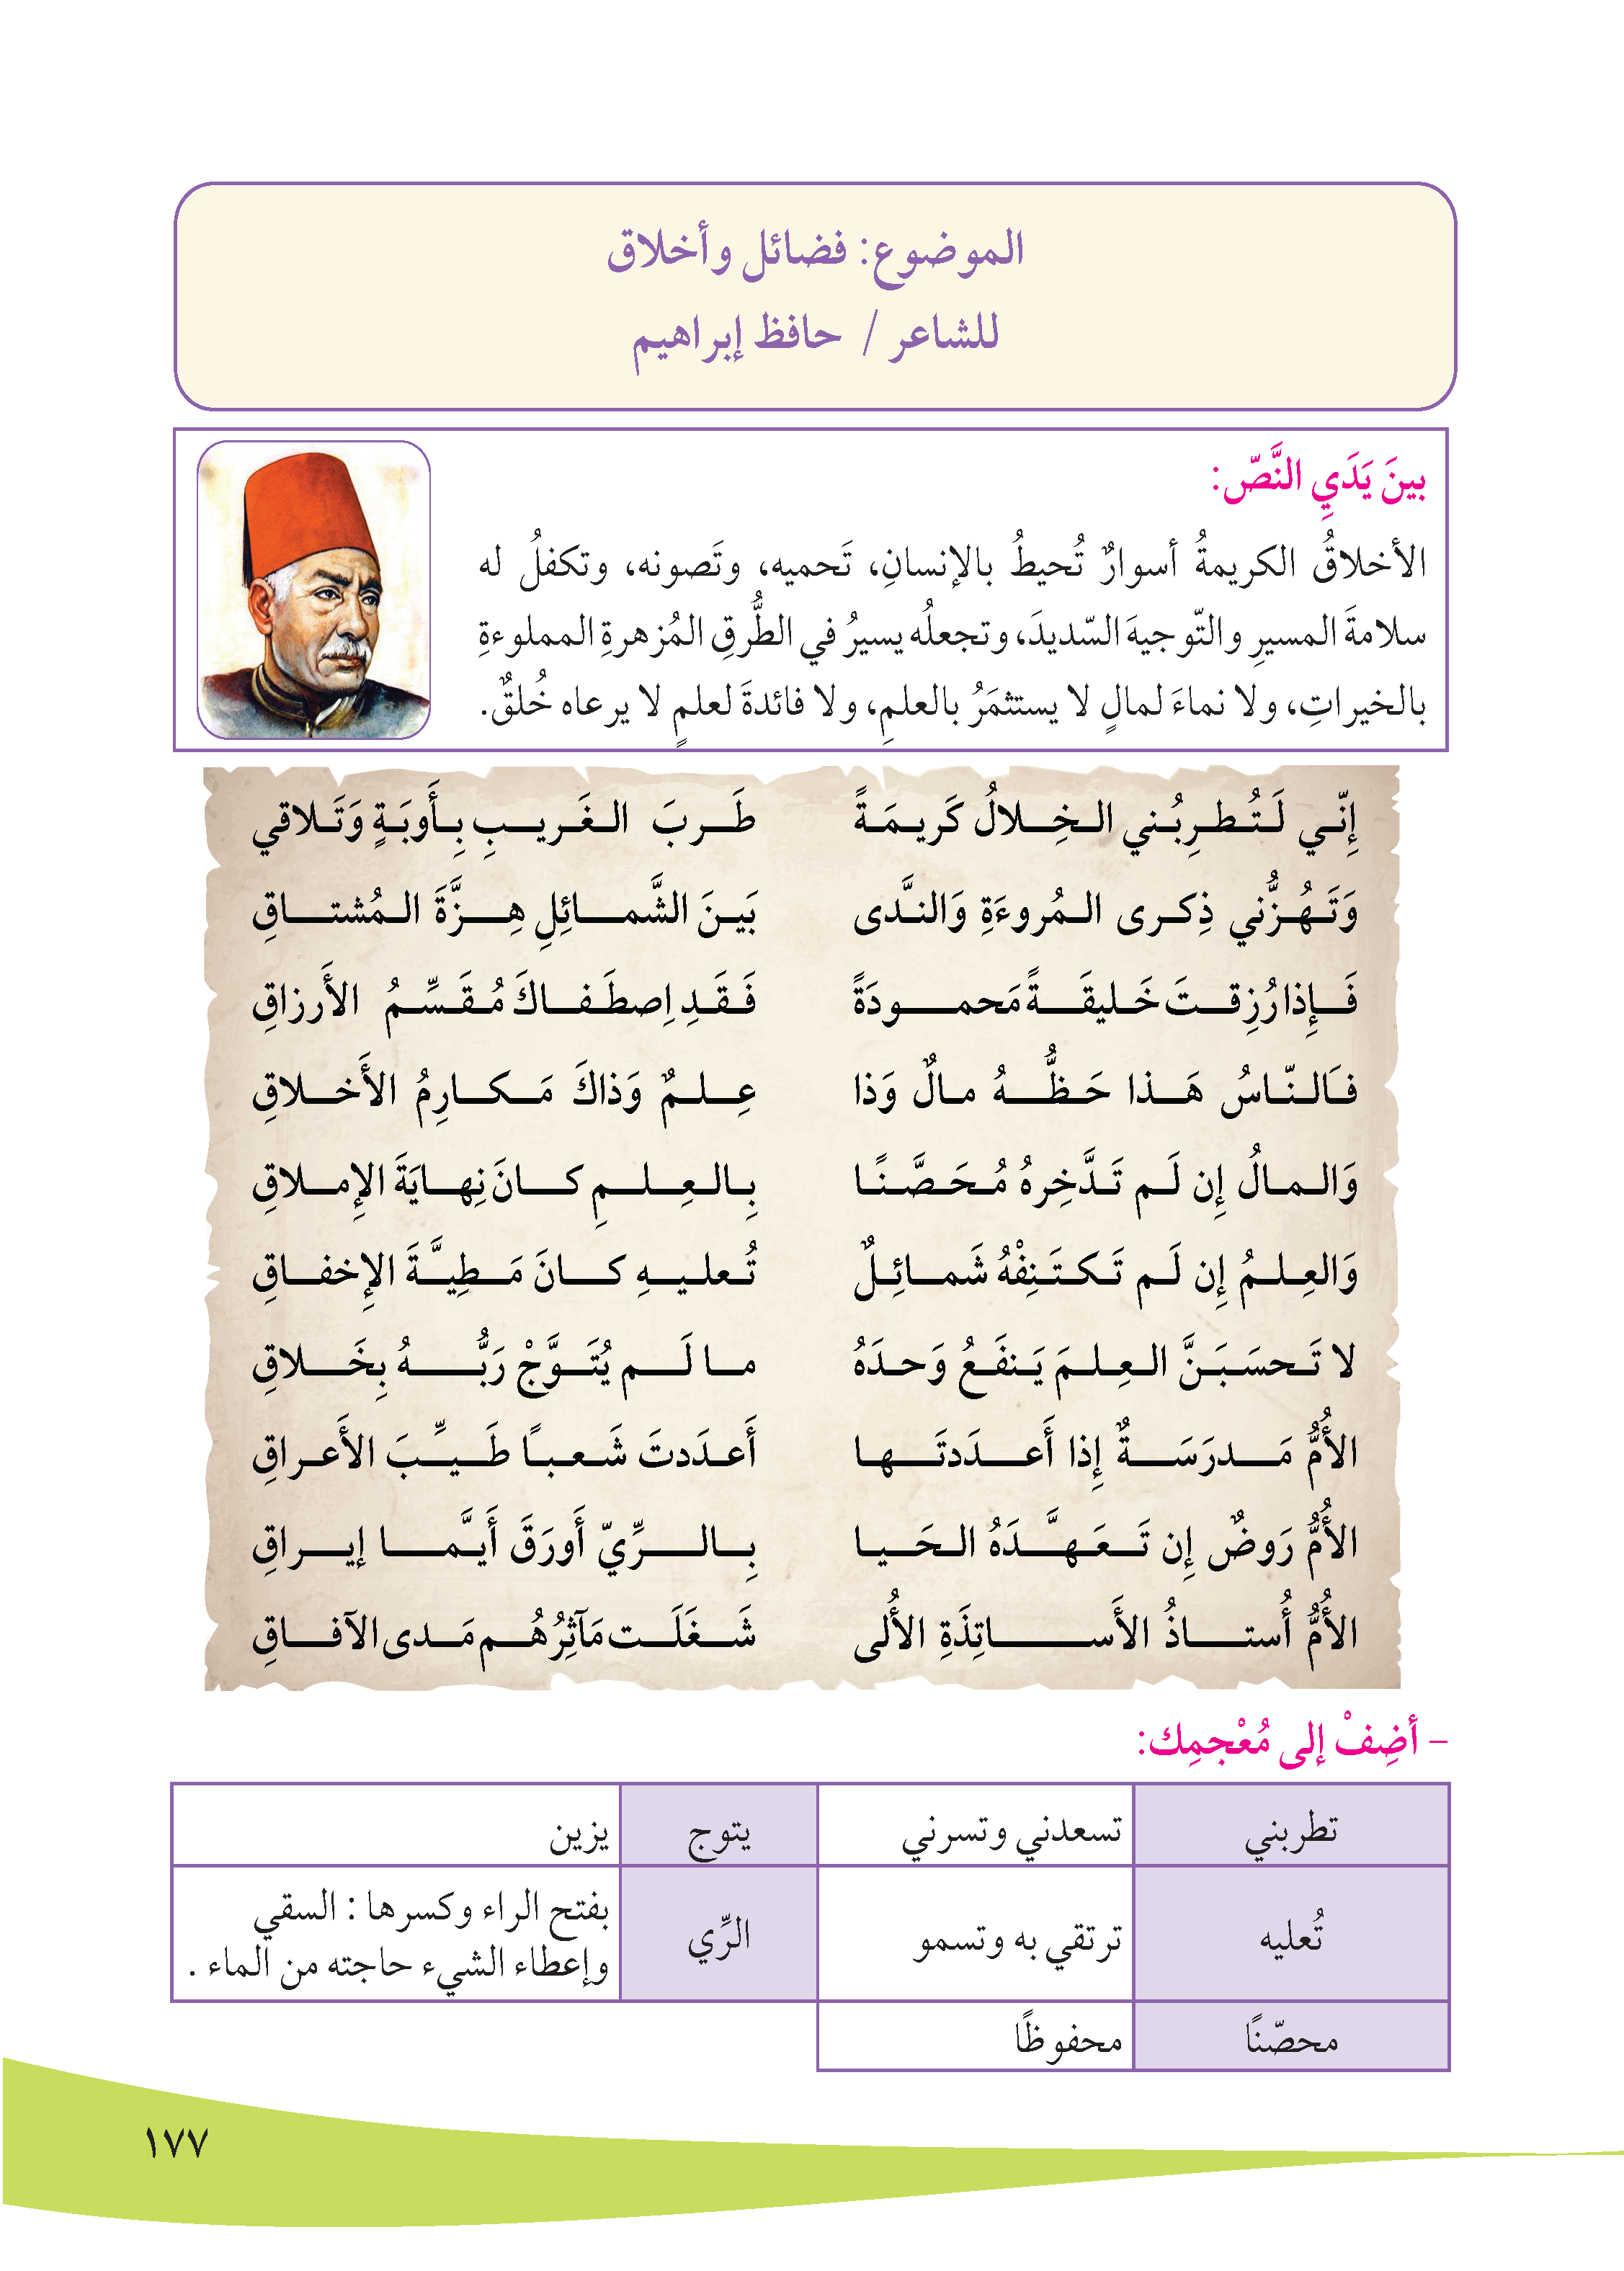 الموضوع: فضائل وأخلاق
للشاعر / حافظ إبراهيم
بينَ يَدَيِ النَّصّ:
الأخلاقُ الكريمةُ أسوارٌ تُحيطُ بالإنسانِ، تَحميه، وتَصونه، وتكفلُ له
سلامةَ المسيرِ والتّوجيهَ السّديدَ، وتجعلُه يسيرُ في الطُّرقِ المُزهرةِ المملوءةِ
بالخيراتِ، ولا نماءَ لمالٍ لا يستثمَرُ بالعلمِ، ولا فائدةَ لعلمٍ لا يرعاه خُلقٌ.
إِنّي لَتُطرِبُني الخِلالُ كَريمَةً طَربَ الغَريبِ بِأَوبَةٍ وَتَلاقي
وَتَهُزُّني ذِكرى المُروءَةِ وَالنَّدى بَينَ الشَّمائِلِ هِزَّةَ المُشتاقِ
فَإِذا رُزِقتَ خَليقَةً مَحمودَةً فَقَدِ اِصطَفاكَ مُقَسِّمُ الأَرزاقِ
فَالنّاسُ هَذا حَظُّهُ مالٌ وَذا عِلمٌ وَذاكَ مَكارِمُ الأَخلاقِ
وَالمالُ إِن لَم تَدَّخِرهُ مُحَصَّنًا بِالعِلمِ كانَ نِهايَةَ الإِملاقِ
وَالعِلمُ إِن لَم تَكتَنِفْهُ شَمائِلٌ تُعليهِ كانَ مَطِيَّةَ الإِخفاقِ
لا تَحسَبَنَّ العِلمَ يَنفَعُ وَحدَهُ ما لَم يُتَوَّجْ رَبُّهُ بِخَلاقِ
الأُمُّ مَدرَسَةٌ إِذا أَعدَدتَها أَعدَدتَ شَعباً طَيِّبَ الأَعراقِ
الأُمُّ رَوضٌ إِن تَعَهَّدَهُ الحَيا بِالرِّيّ أَورَقَ أَيَّما إيراقِ
الأُمُّ أُستاذُ الأَساتِذَةِ الأُلى شَغَلَت مَآثِرُهُم مَدى الآفاقِ
– أضِفْ إلى مُعْجمِك:
تطربني تسعدني وتسرني يتوج يزين
تُعليه ترتقي به وتسمو الرِّي بفتح الراء وكسرها : السقي
وإعطاء الشيء حاجته من الماء .
محصّنًا محفوظًا
١٧٧